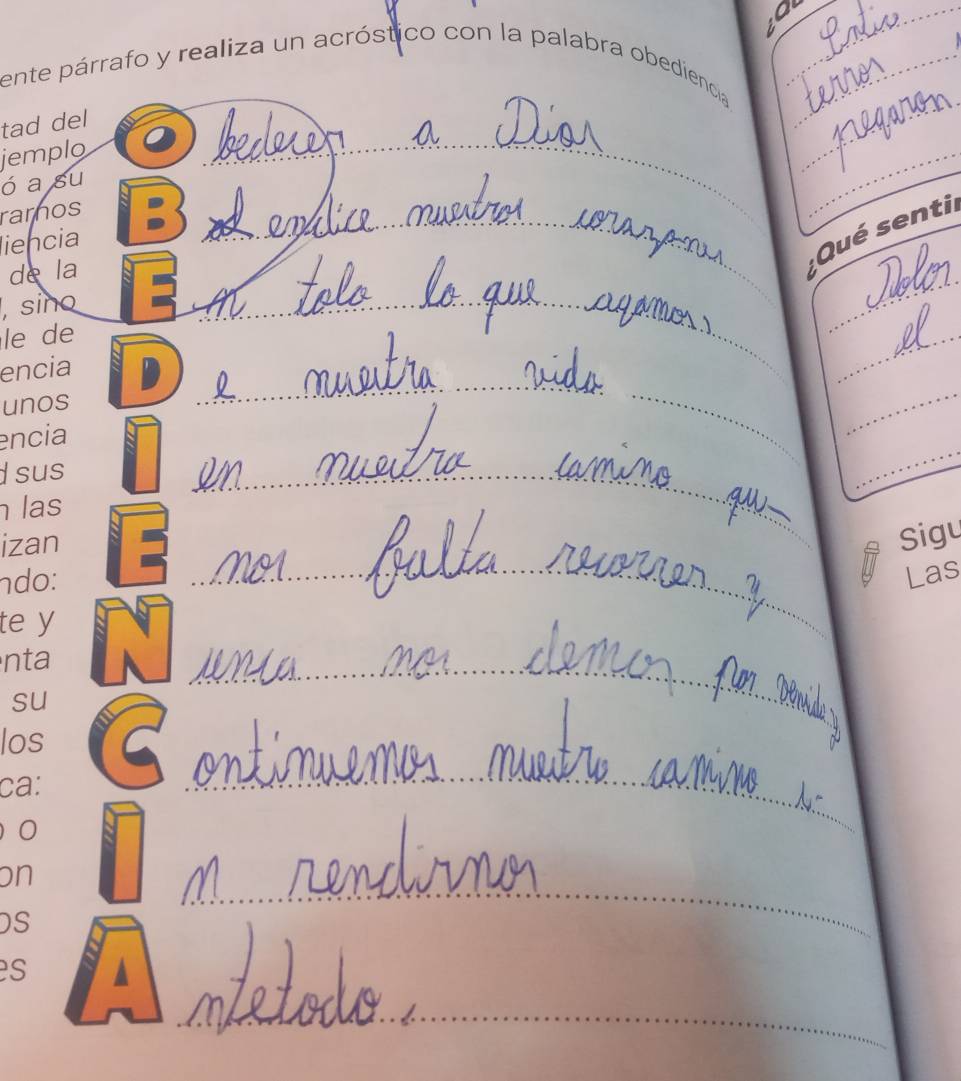 ente párrafo y realiza un acróstico con la palabra obediencia
tad del
jemplo
ó a su
ramos
liencia
de la
, sino
le de
encia
unos
encia
d sus
n las
izan
ndo:
te y
nta
su
los
ca:
o
on
os
es
O bedecer a Dios
B endice nuestros corazones
E n todo lo que agamos,
D e nuestra vida
I en nuestro camino qu-
E nos falta recorrer y
N unca nos demos por vencida y
C ontinuemos nuestro camino s-
I n rendirnos
A ntetodo.
terror
pegaron
¿Qué sentir
Dolor
el
Sigu
Las